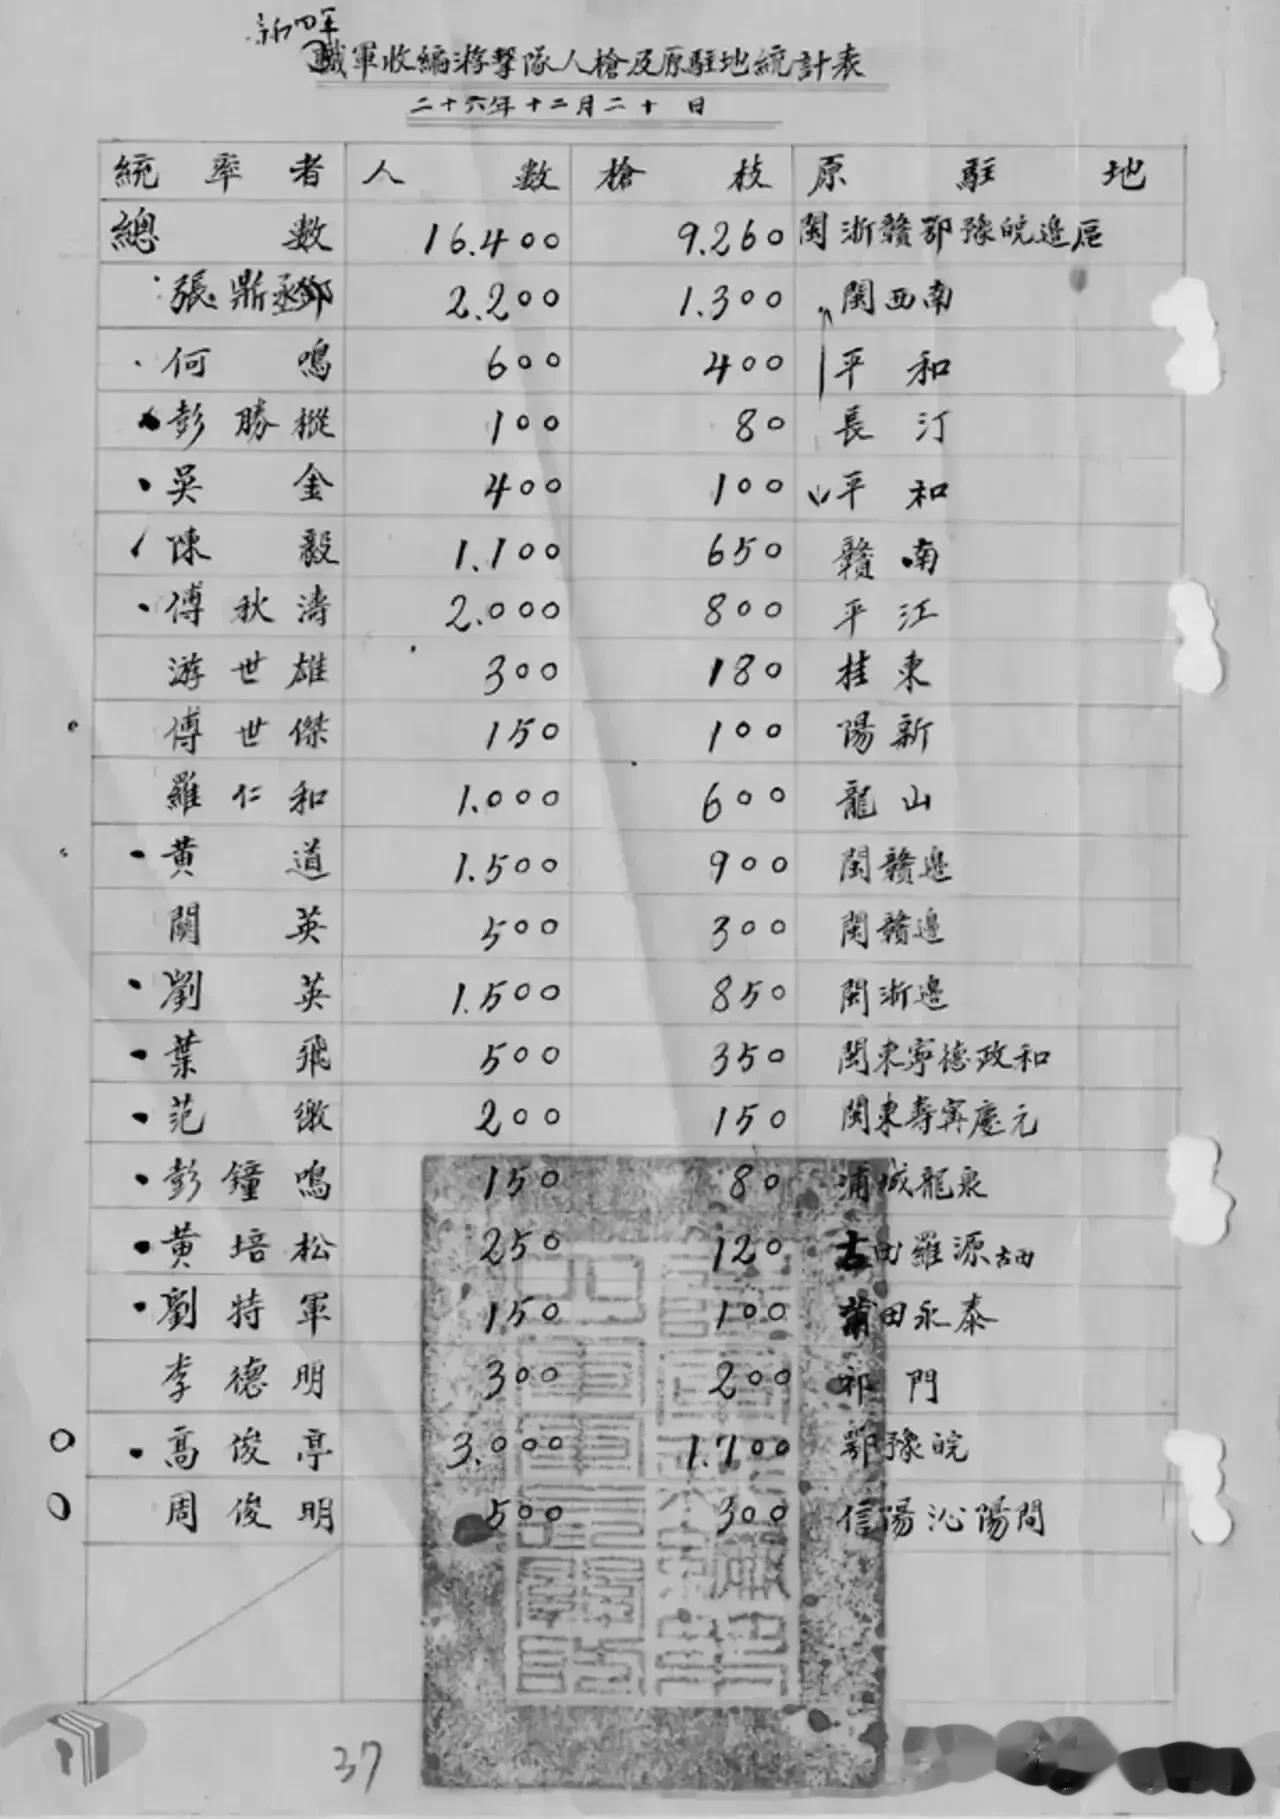 新四军
職軍收編游擊隊人槍及原駐地統計表
二十六年十二月二十日
統率者 人數 槍枝 原駐地
總數 16.400 9.260 閩浙贛鄂豫皖邊區
張鼎丞鄧 2.200 1.300 閩西南
何鳴 600 400 平和
彭勝樅 100 80 長汀
吳金 400 100 平和
陳毅 1.100 650 贛南
傅秋濤 2.000 800 平江
游世雄 300 180 桂東
傅世傑 150 100 陽新
羅仁和 1.000 600 龍山
黃道 1.500 900 閩贛邊
關英 500 300 閩贛邊
劉英 1.500 850 閩浙邊
葉飛 500 350 閩東寧德政和
范 200 150 閩東壽寧慶元
彭鐘鳴 150 80 浦城龍泉
黃培松 250 120 古田羅源古田
劉特軍 150 100 莆田永泰
李德明 300 200 祁門
高俊亭 3.000 1.700 鄂豫皖
周俊明 500 300 信陽沁陽間
37